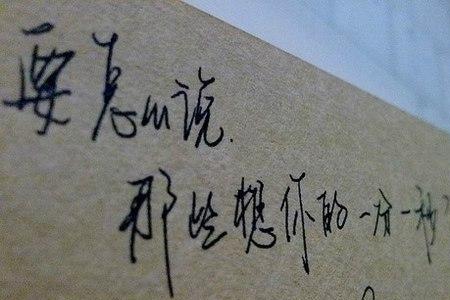 要怎么说.
那些想你的一分一秒